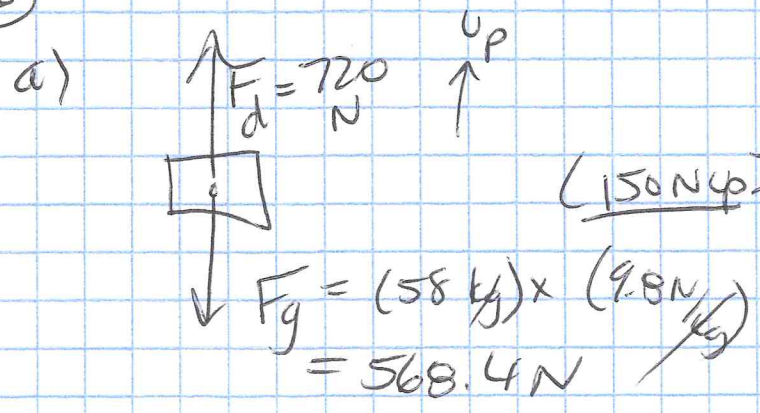 a)
F_d = 720 N
up
(150 N up
F_g = (58 kg) x (9.8 N/kg)
= 568.4 N